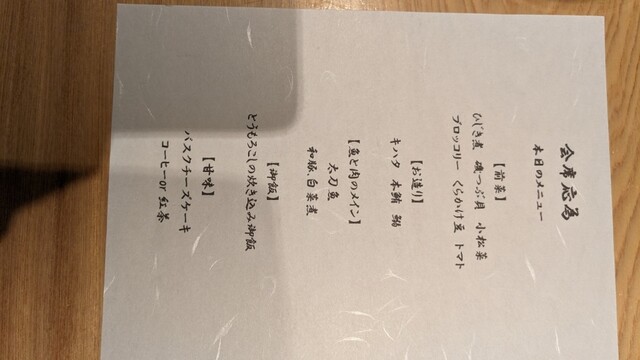 会席
本日のメニュー
【前菜】
ひじき煮 磯つぶ貝 小松菜
ブロッコリー くらかけ豆 トマト
【お造り】
キハタ 本鮪
【魚と肉のメイン】
太刀魚
和豚白菜煮
【御飯】
とうもろこしの炊き込み御飯
【甘味】
バスクチーズケーキ
コーヒーor紅茶